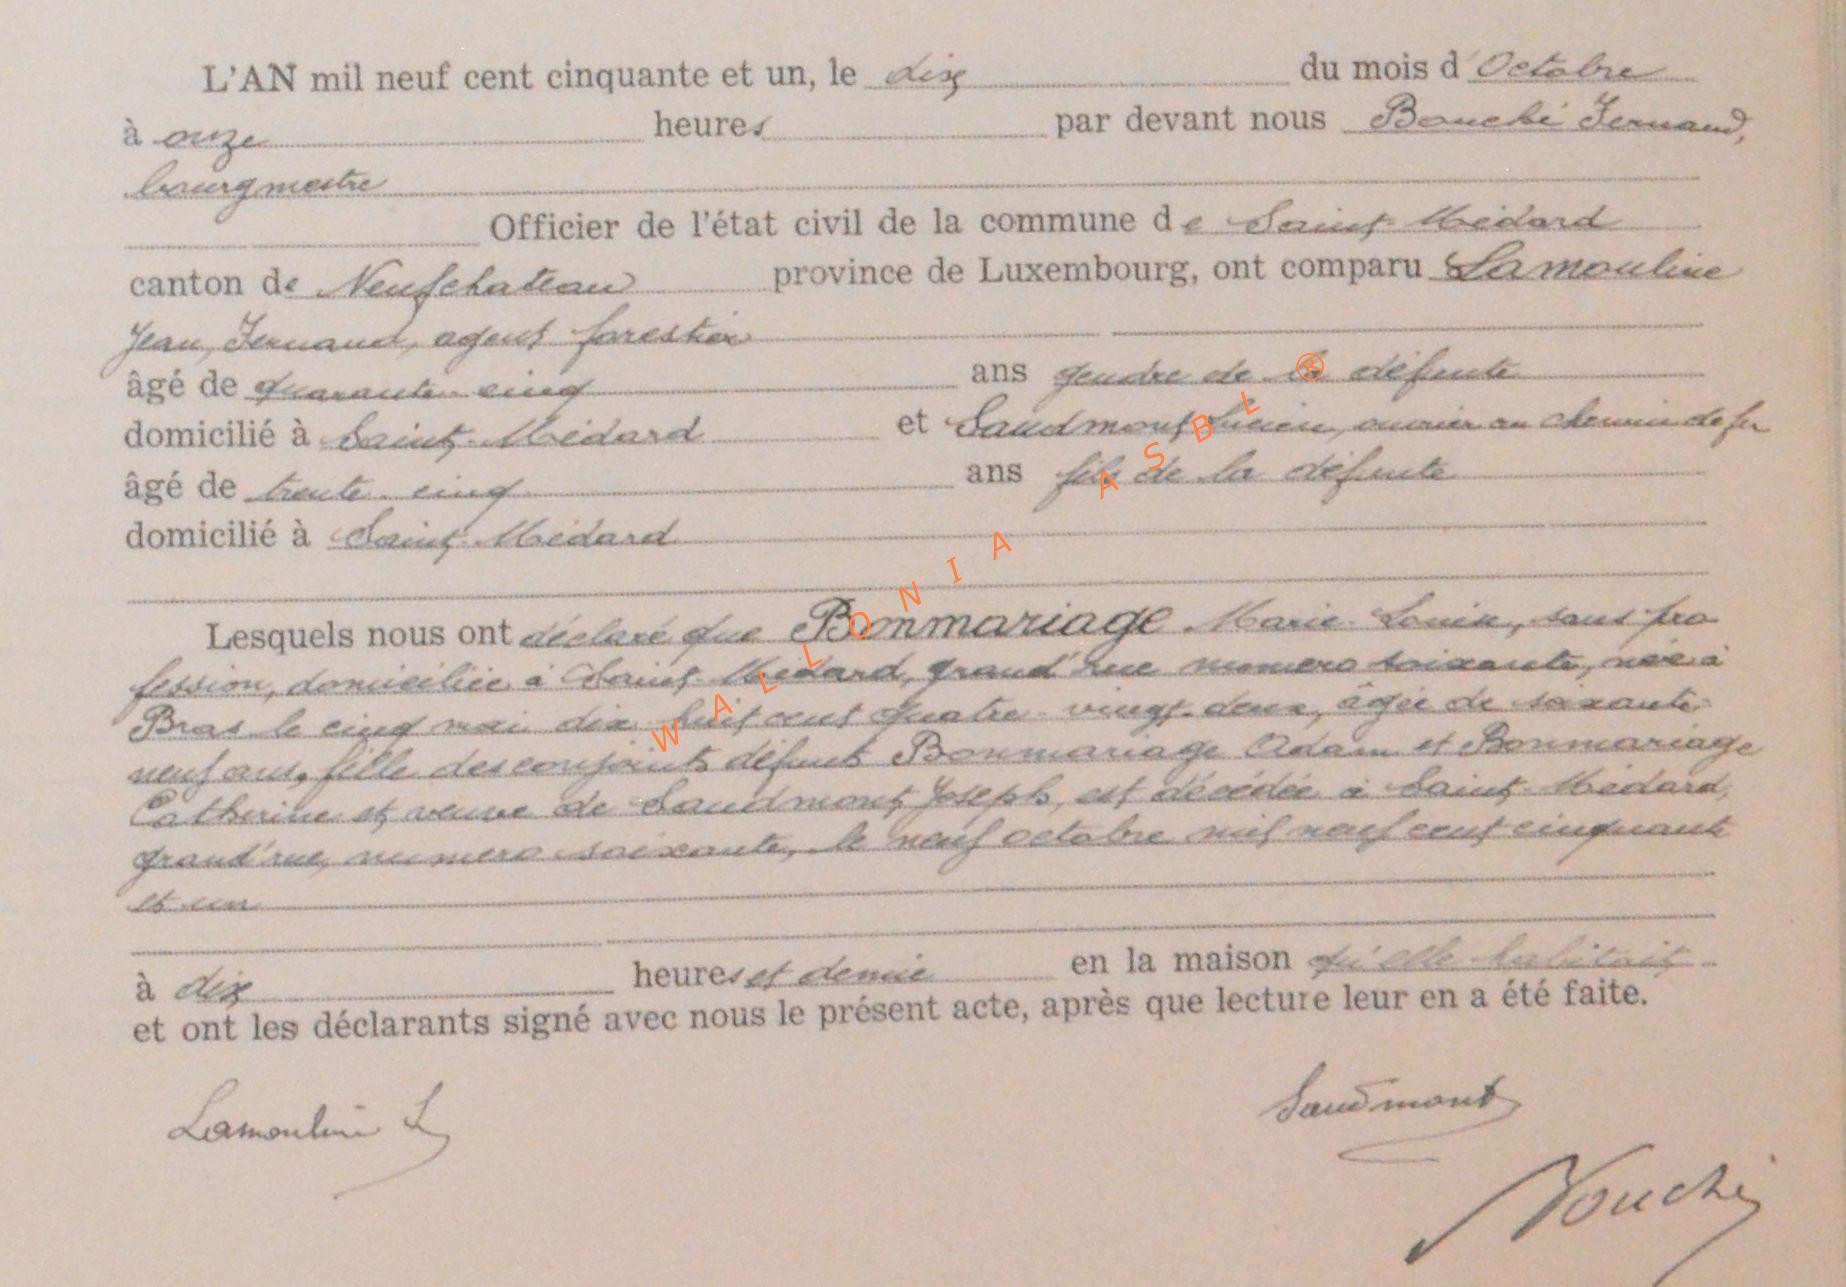 L'AN mil neuf cent cinquante et un, le dix du mois d'Octobre
à onze heures par devant nous Bouché Fernand,
bourgmestre
Officier de l'état civil de la commune de Saint-Médard
canton de Neufchateau province de Luxembourg, ont comparu Lamouline
Jean, Fernand, agent forestier
âgé de quarante-cinq ans gendre de la défunte
domicilié à Saint-Médard et Saudmont Lucien, ouvrier au chemin de fer
âgé de trente-cinq ans fils de la défunte
domicilié à Saint-Médard
Lesquels nous ont déclaré que Bonmariage Marie-Louise, sans pro
fession, domiciliée à Saint-Médard, grand'rue numéro soixante, née à
Bras le cinq mai dix huit cent quatre-vingt-deux, âgée de soixante-
neuf ans, fille des conjoints défunts Bonmariage Adam et Bonmariage
Catherine et veuve de Saudmont Joseph, est décédée à Saint-Médard,
grand'rue, numéro soixante, le neuf octobre mil neuf cent cinquante
et un
à dix heures et demie en la maison qu'elle habitait
et ont les déclarants signé avec nous le présent acte, après que lecture leur en a été faite.
Lamouline
Saudmont
Bouché
WALLONIA ASBL ®